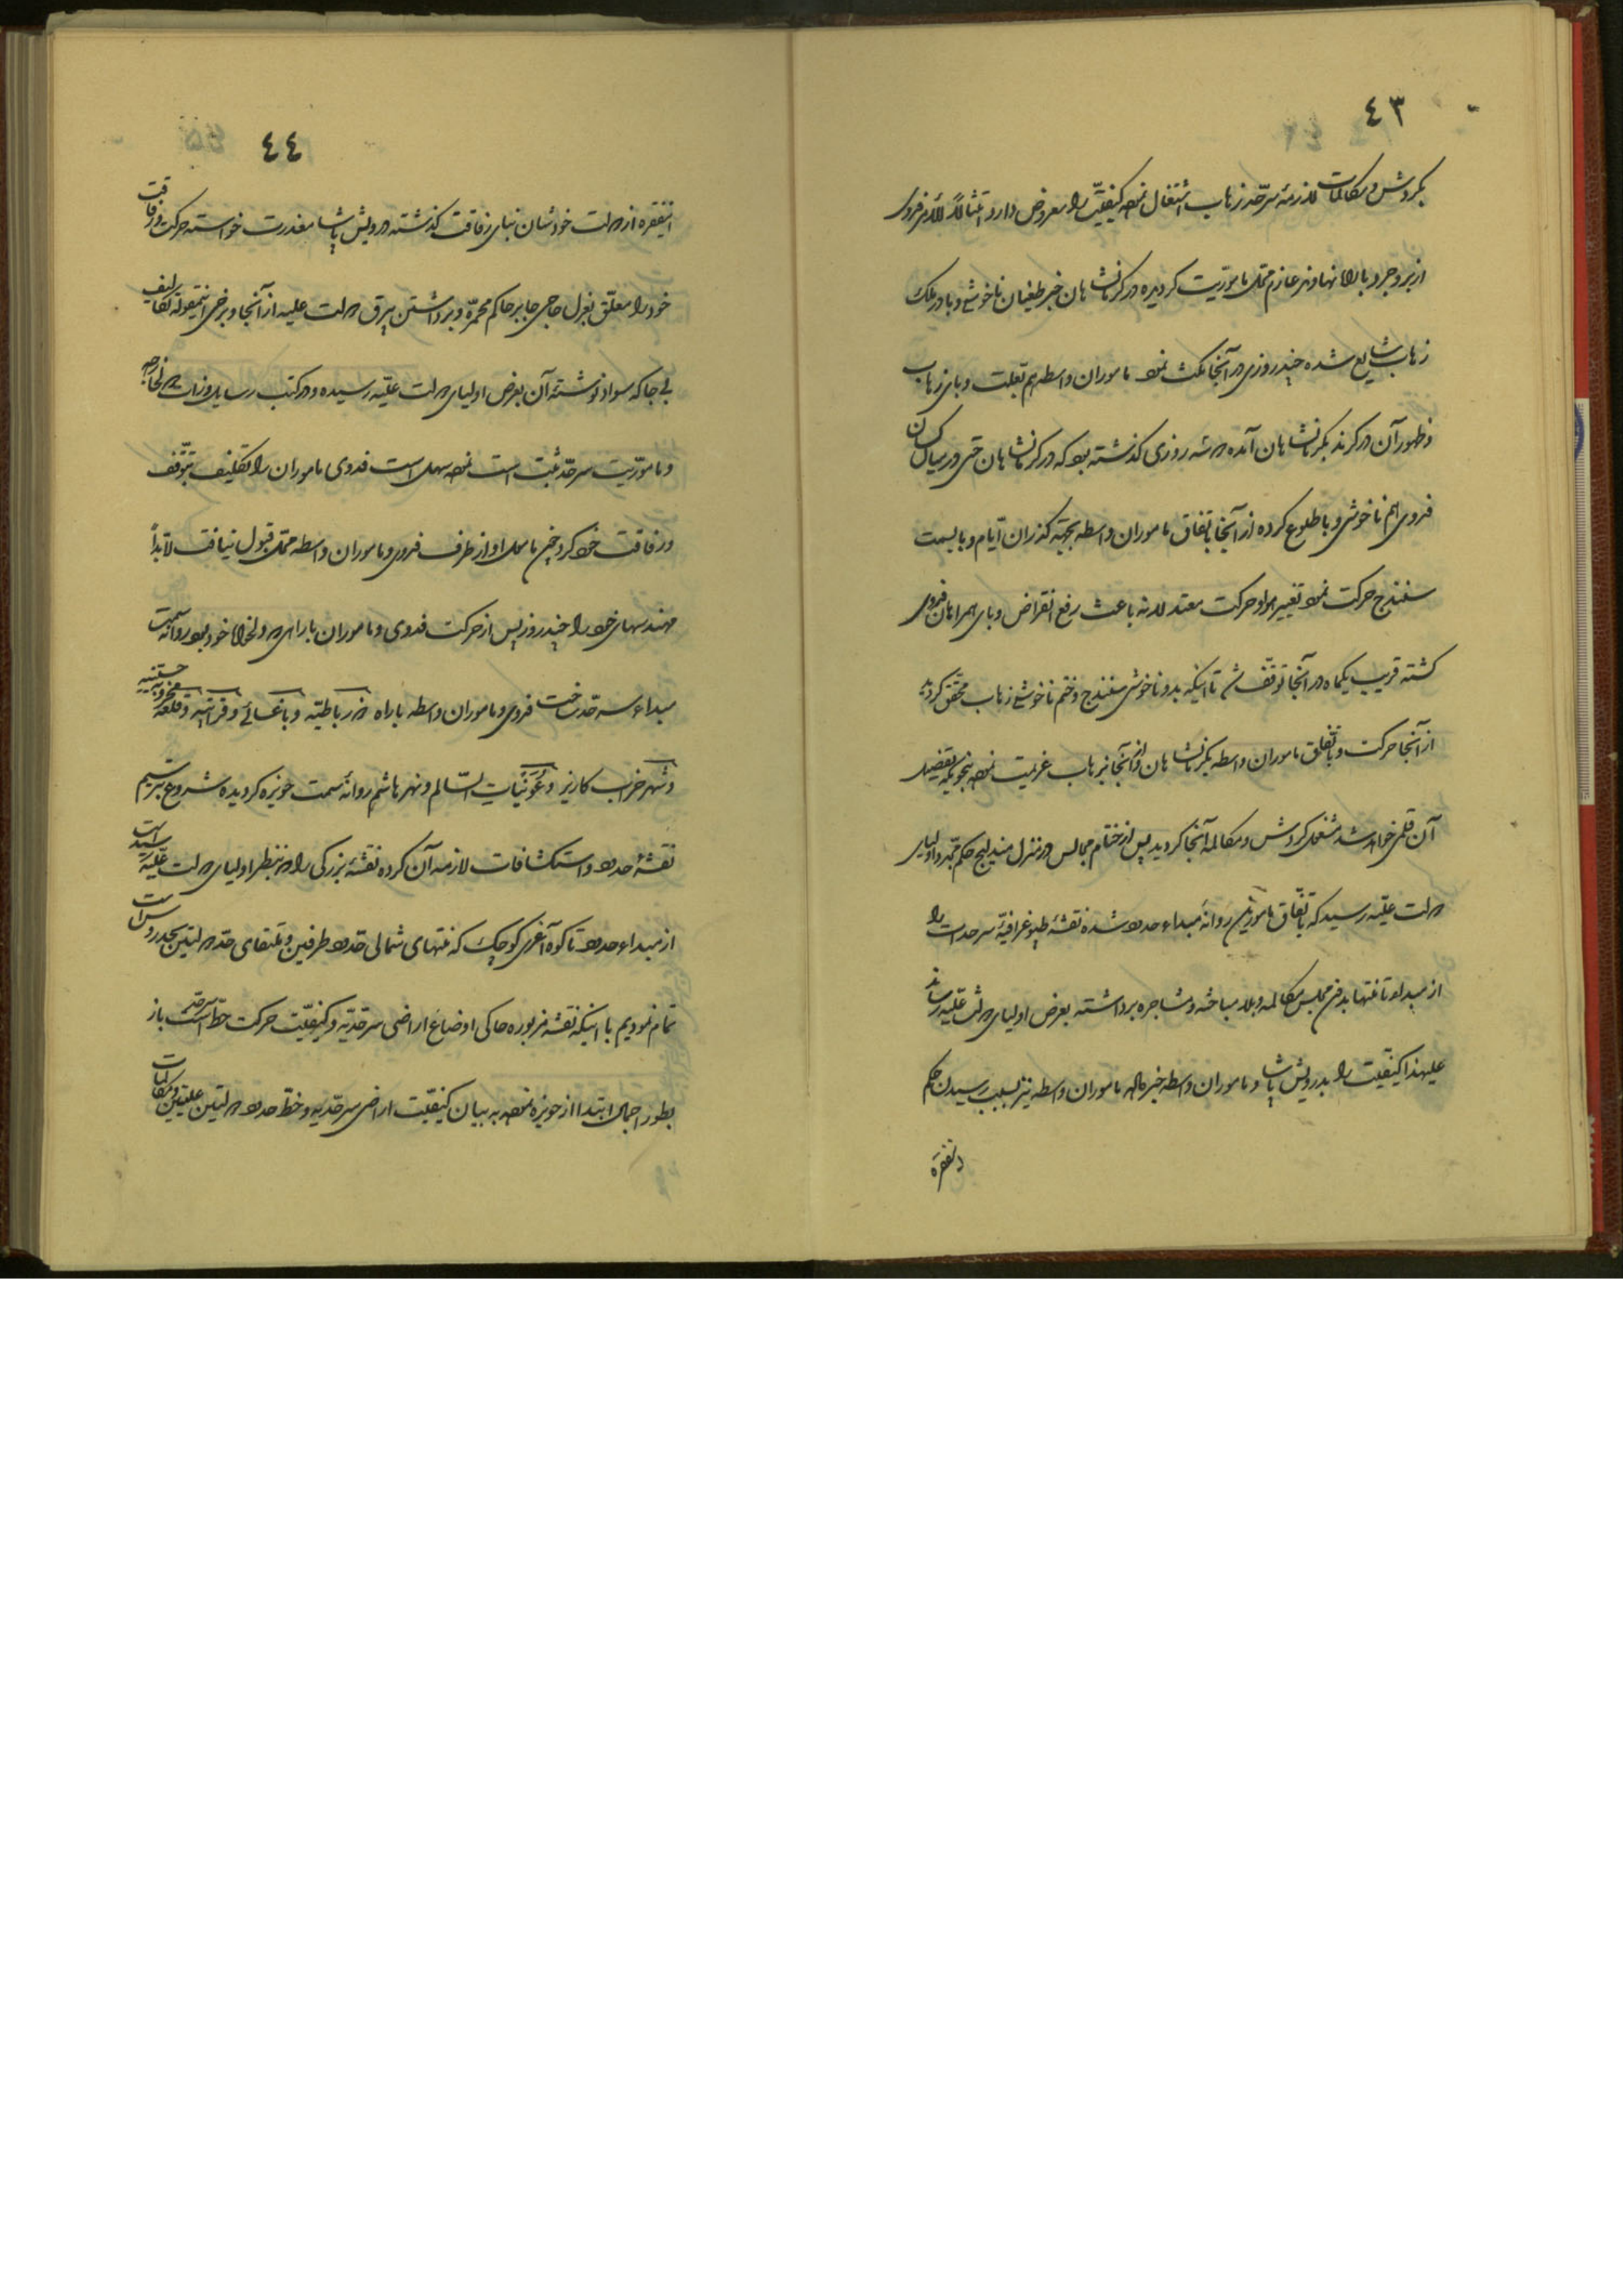 ٤٣
بگردش و مکالمات لازمهٔ سرحد زهاب اشتغال نموده کیفیت را معروض دارد امتثالاً للامر فدوی
از بروجرد با راه نهاوند عازم محل مأموریت گردیده در کرمانشاهان خبر طغیان ناخوشی وبا در ملک
زهاب شایع شده چند روزی در آنجا مکث نمود مأموران واسطه هم بعلت وبای زهاب
و ظهور آن در کرند بکرمانشاهان آمده سه روزی گذشته بود که در کرمانشاهان حتی در میان کسان
فدوی هم ناخوشی وبا طلوع کرده از آنجا باتفاق مأموران واسطه بجهة گذران ایام وبا بسمت
سنندج حرکت نمود تغییر هوا و حرکت معتدلانه باعث رفع انقراض وبای همراهان فدوی
گشته قریب یکماه در آنجا توقف شد تا اینکه بدو ناخوشی سنندج و ختم ناخوشی زهاب محقق گردید
از آنجا حرکت و باتفاق مأموران واسطه بکرمانشاهان و از آنجا بزهاب عزیمت نموده بنحویکه تفصیل
آن قلمی خواهد شد مشغول گردش و مکالمه آنجا گردید پس از ختام مجالس در منزل مندلیج حکم مجدد اولیای
دولت علیه رسید که باتفاق مأمورین روانهٔ مبداء حدود شده نقشهٔ طپوغرافیهٔ سرحدات را
از مبداء تا منتها بدون مجلس مکالمه و بلا مباحثه و مشاجره برداشته بعرض اولیای دولت علیه رساند
علیهذا کیفیت را بدرویش پاشا و مأموران واسطه خبر داده مأموران واسطه نیز بسبب رسیدن حکم
اینفقره
٤٤
اینفقره از دولت خودشان بنای رفاقت گذاشته درویش پاشا معذرت خواسته حرکت و رفاقت
خود را معلق بعزل حاجی جابر حاکم محمره و برداشتن بیرق دولت علیه از آنجا و برخی اینمقوله تکالیف
بی‌جا که سواد نوشته آن بعرض اولیای دولت علیه رسیده و در کتب رسایل وزارت خارجه
و مأموریت سرحد ثبت است نموده سهل است فدوی مأموران را تکلیف بتوقف
و رفاقت خود کرد چون مأمول او از طرف فدوی و مأموران واسطه محل قبول نیافت لابداً
مهندسهای خود را چند روز پس از حرکت فدوی و مأموران با راهی دلخواه خود بود روانه سمت
مبداء سرحد ساخت فدوی و مأموران واسطه با راه ضرباطیه و باغسائی و قرانیه و قلعه
و شهر خراب کاریز و عونیات السالم و نهر هاشم روانهٔ سمت حویزه گردیده شروع بترسیم
نقشهٔ حدود و استکشافات لازمه آن کرده نقشهٔ بزرگی را که بنظر اولیای دولت علیه رسیده است
از مبداء حدود تا کوه آغری کوچک که منتهای شمالی حدود طرفین و ملتقای حد دولتین بحد روس است
تمام نمودیم با اینکه نقشه مزبوره حاکی اوضاع اراضی سرحدیه و کیفیت حرکت خط سرحد است باز
بطور اجمال ابتدا از حویزه نموده به بیان کیفیت اراضی سرحدیه و خط حدود دولتین علیتین و مکالمات